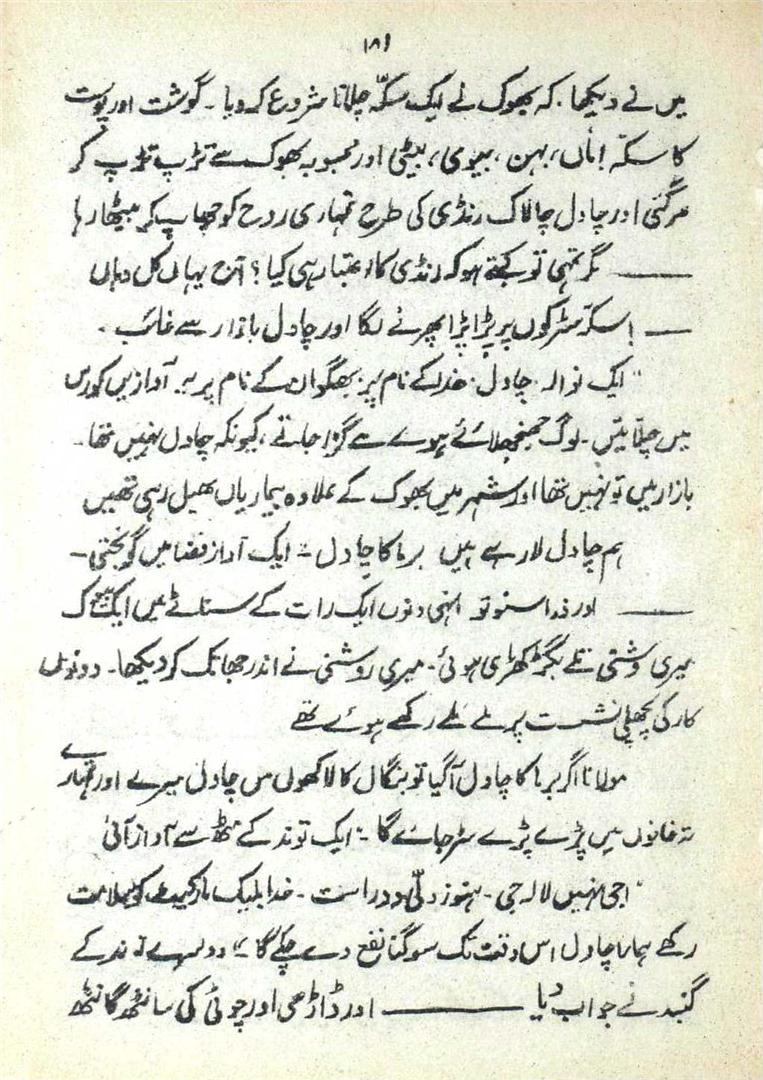 ۱۸۱
میں نے دیکھا۔ کہ بھوک نے ایک سکہّ چلانا شروع کر دیا۔ گوشت اور پوست
کا سکہّ! ماں، بہن، بیوی، بیٹی اور محبوبہ بھوک سے تڑپ تڑپ کر
مر گئی اور چاول چالاک رنڈی کی طرح تمہاری روح کو چھاپ کر بیٹھا رہا
——— مگر تمہی تو کہتے ہو کہ رنڈی کا اعتبار ہی کیا؟ آج یہاں کل وہاں
— سکہّ سڑکوں پر پڑا پڑا پھرنے لگا اور چاول بازار سے غائب۔
"ایک نوالہ چاول خدا کے نام پر، بھگوان کے نام پر" یہ آوازیں کورس
میں چلّائیں۔ لوگ جھنجھلائے ہوئے سے گزر جاتے، کیونکہ چاول نہیں تھا۔
بازار میں تو نہیں تھا اور شہر میں بھوک کے علاوہ بیماریاں پھیل رہی تھیں
ہم چاول لا رہے ہیں برما کا چاول" ایک آواز فضا میں گونجتی—
——— اور ذرا سنو تو انہی دنوں ایک رات کے سناٹے میں ایک
میری روشنی تلے بگڑ کھڑی ہوئی۔ میری روشنی نے اندر جھانک کر دیکھا۔ دو
کار کی پچھلی نشست پر ملے رکھے ہوئے تھے
مولانا اگر برما کا چاول آ گیا تو بنگال کا لاکھوں من چاول میرے اور تمہارے
تہ خانوں میں پڑے پڑے سڑ جائے گا" ایک توند کے مٹھ سے آواز آئی
"اجی نہیں لالہ جی۔ ہنوز دلّی دور است۔ خدا بلیک مارکیٹ کو سلامت
رکھے ہمارا چاول اس وقت تک سو گنا نفع دے چکے گا" دوسرے توند کے
گنبد نے جواب دیا ——— اور ڈاڑھی اور چوٹی کی سانٹھ گانٹھ